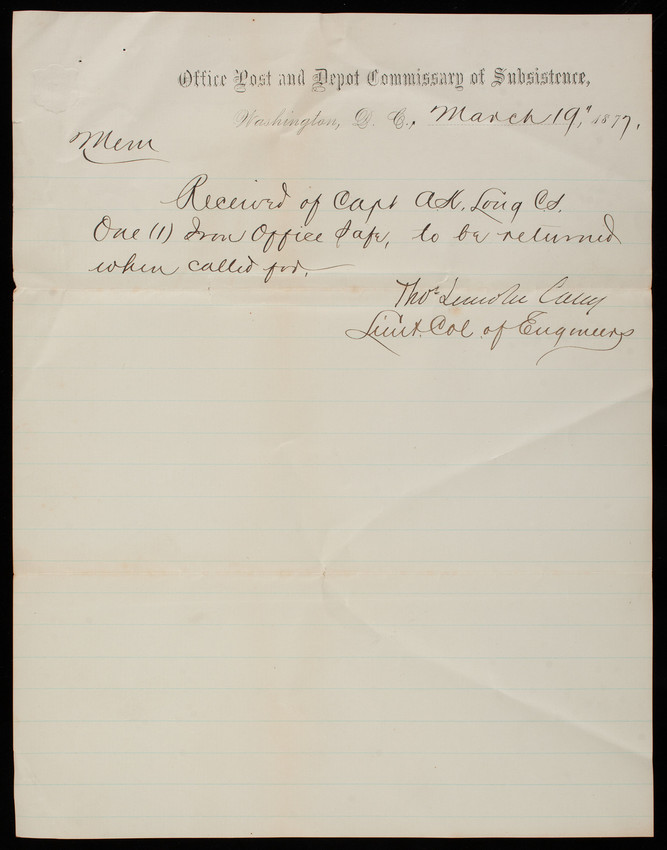 Office Post and Depot Commissary of Subsistence,
Washington, D. C., March 19", 1877.
Mem
Received of Capt A.K. Long C.S.
One (1) Iron Office Safe, to be returned
when called for.
Thos Lincoln Casey
Lieut. Col. of Engineers